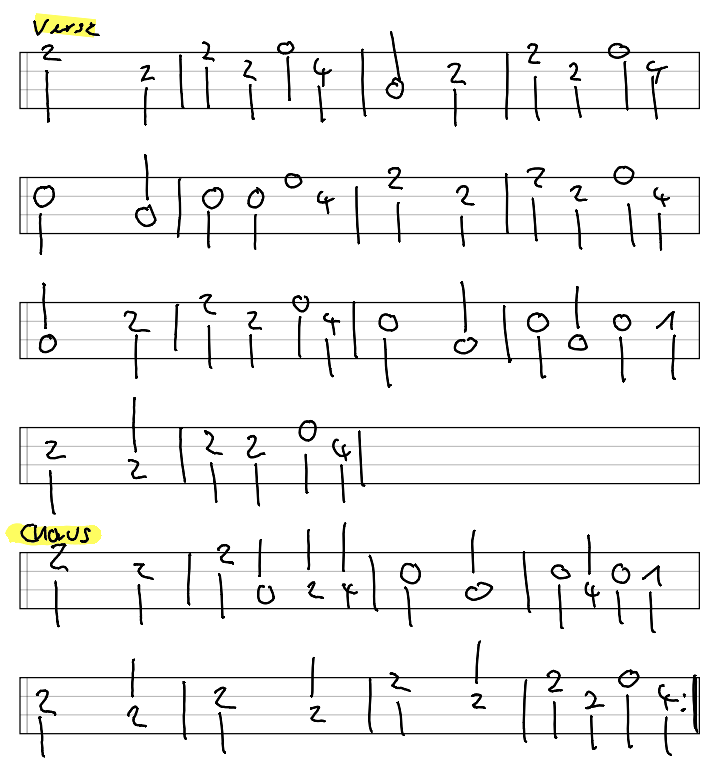 Verse
2 2 | 2 2 0 4 | 0 2 | 2 2 0 4
0 0 | 0 0 0 4 | 2 2 | 2 2 0 4
0 2 | 2 2 0 4 | 0 0 | 0 0 0 1
2 2 | 2 2 0 4 |
Chorus
2 2 | 2 0 2 4 | 0 0 | 0 4 0 1
2 2 | 2 2 | 2 2 | 2 2 0 4 :|